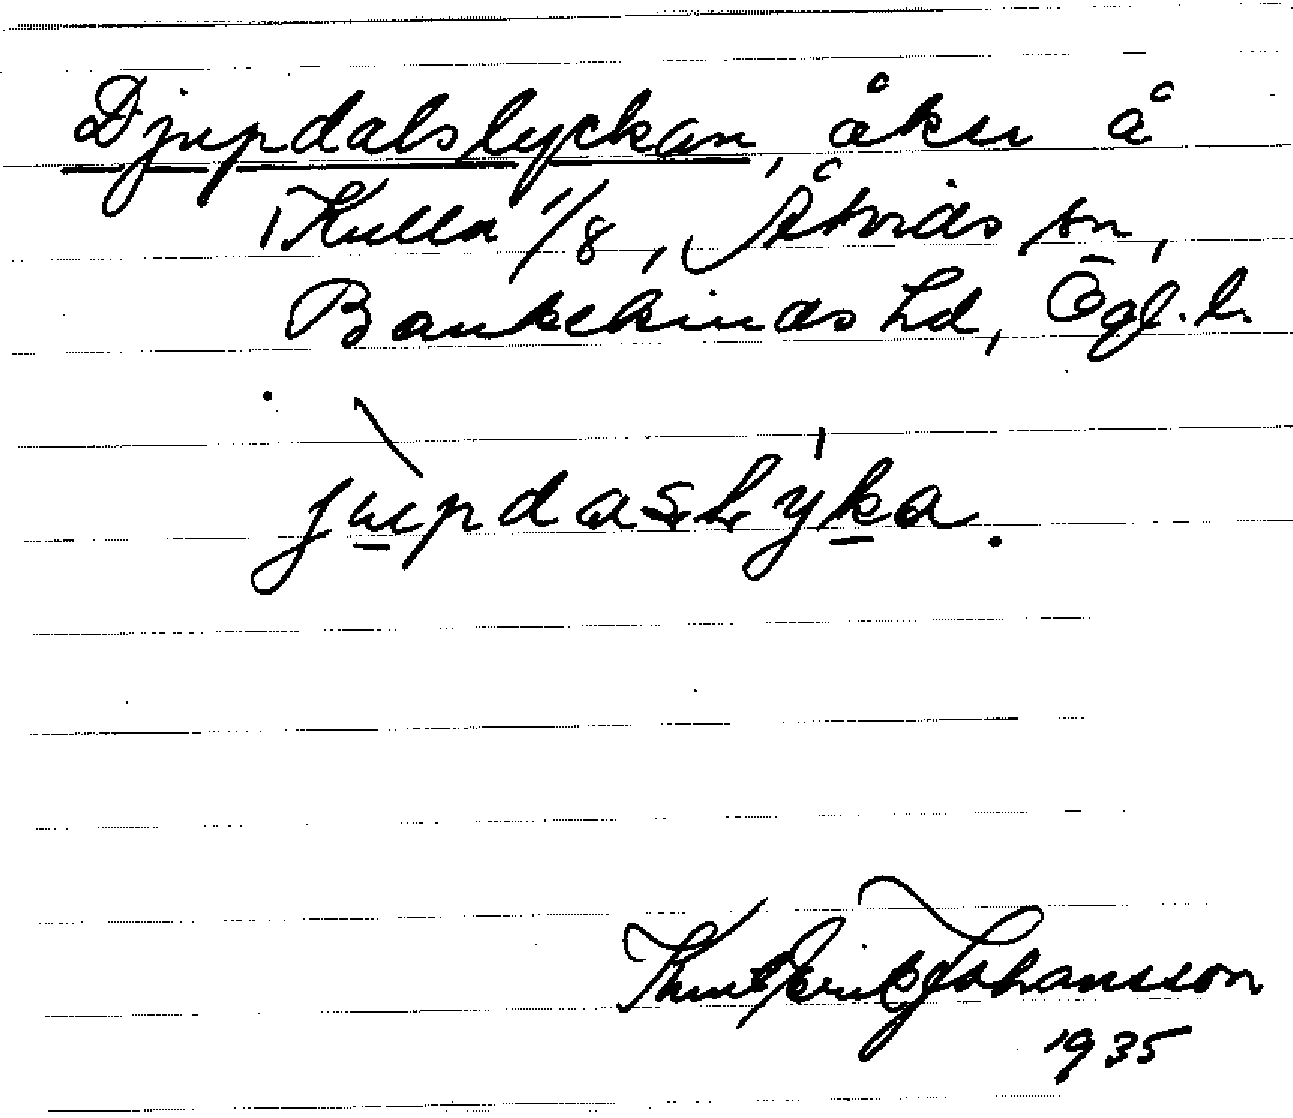 Djupdalslyckan, åker å
Kulla 1/8, Åtvids sn,
Bankekinds hd, Ögl. l.
jupdaslyka.
Knut Erik Johansson
1935